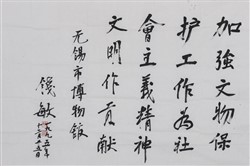 加強文物保
护工作為社
會主義精神
文明作贡献
无锡市博物館
錢敏
一九九五年